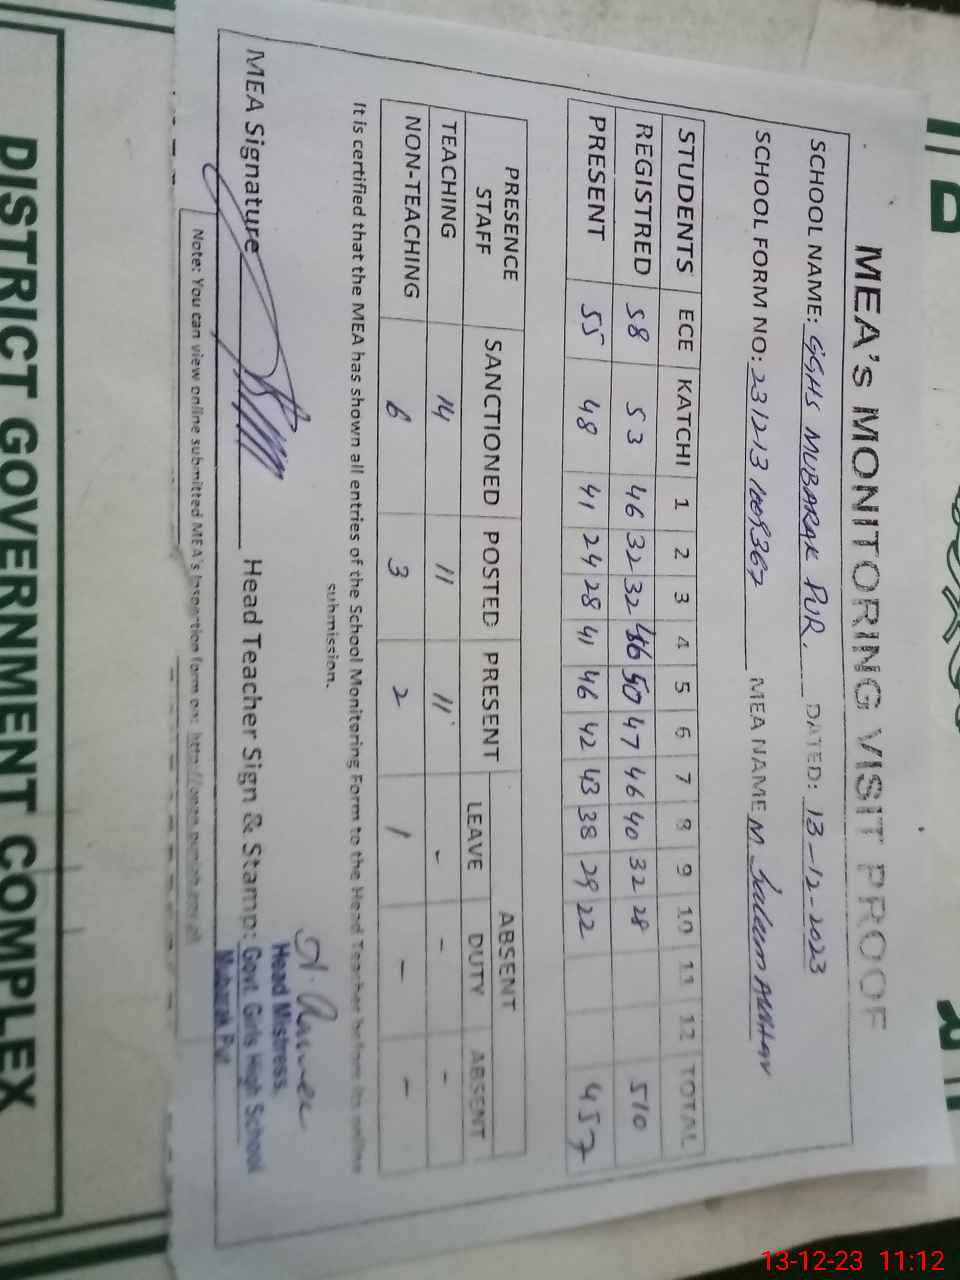 MEA's MONITORING VISIT PROOF
SCHOOL NAME: GGHS MUBARAK PUR. DATED: 13-12-2023
SCHOOL FORM NO: 231213 1008367 MEA NAME M. Saleem Akhtar
STUDENTS ECE KATCHI 1 2 3 4 5 6 7 8 9 10 11 12 TOTAL
REGISTRED 58 53 46 32 32 46 50 47 46 40 32 28 510
PRESENT 55 48 41 24 28 41 46 42 43 38 29 22 457
PRESENCE STAFF SANCTIONED POSTED PRESENT ABSENT
LEAVE DUTY ABSENT
TEACHING 14 11 11 - - -
NON-TEACHING 6 3 2 1 - -
It is certified that the MEA has shown all entries of the School Monitoring Form to the Head Teacher before its online
submission.
MEA Signature Head Teacher Sign & Stamp:
Head Mistress.
Govt. Girls High School
Mubarak Pur
Note: You can view online submitted MEA's Inspection form on:
DISTRICT GOVERNMENT COMPLEX
13-12-23 11:12